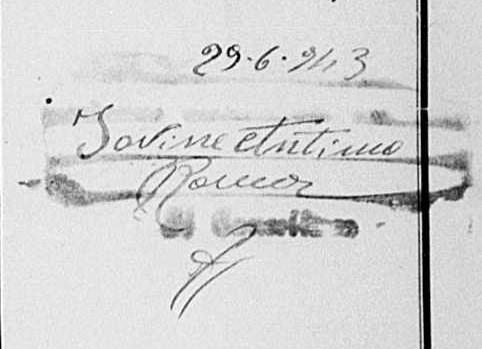 29.6.943
Iovine Antimo
Roma